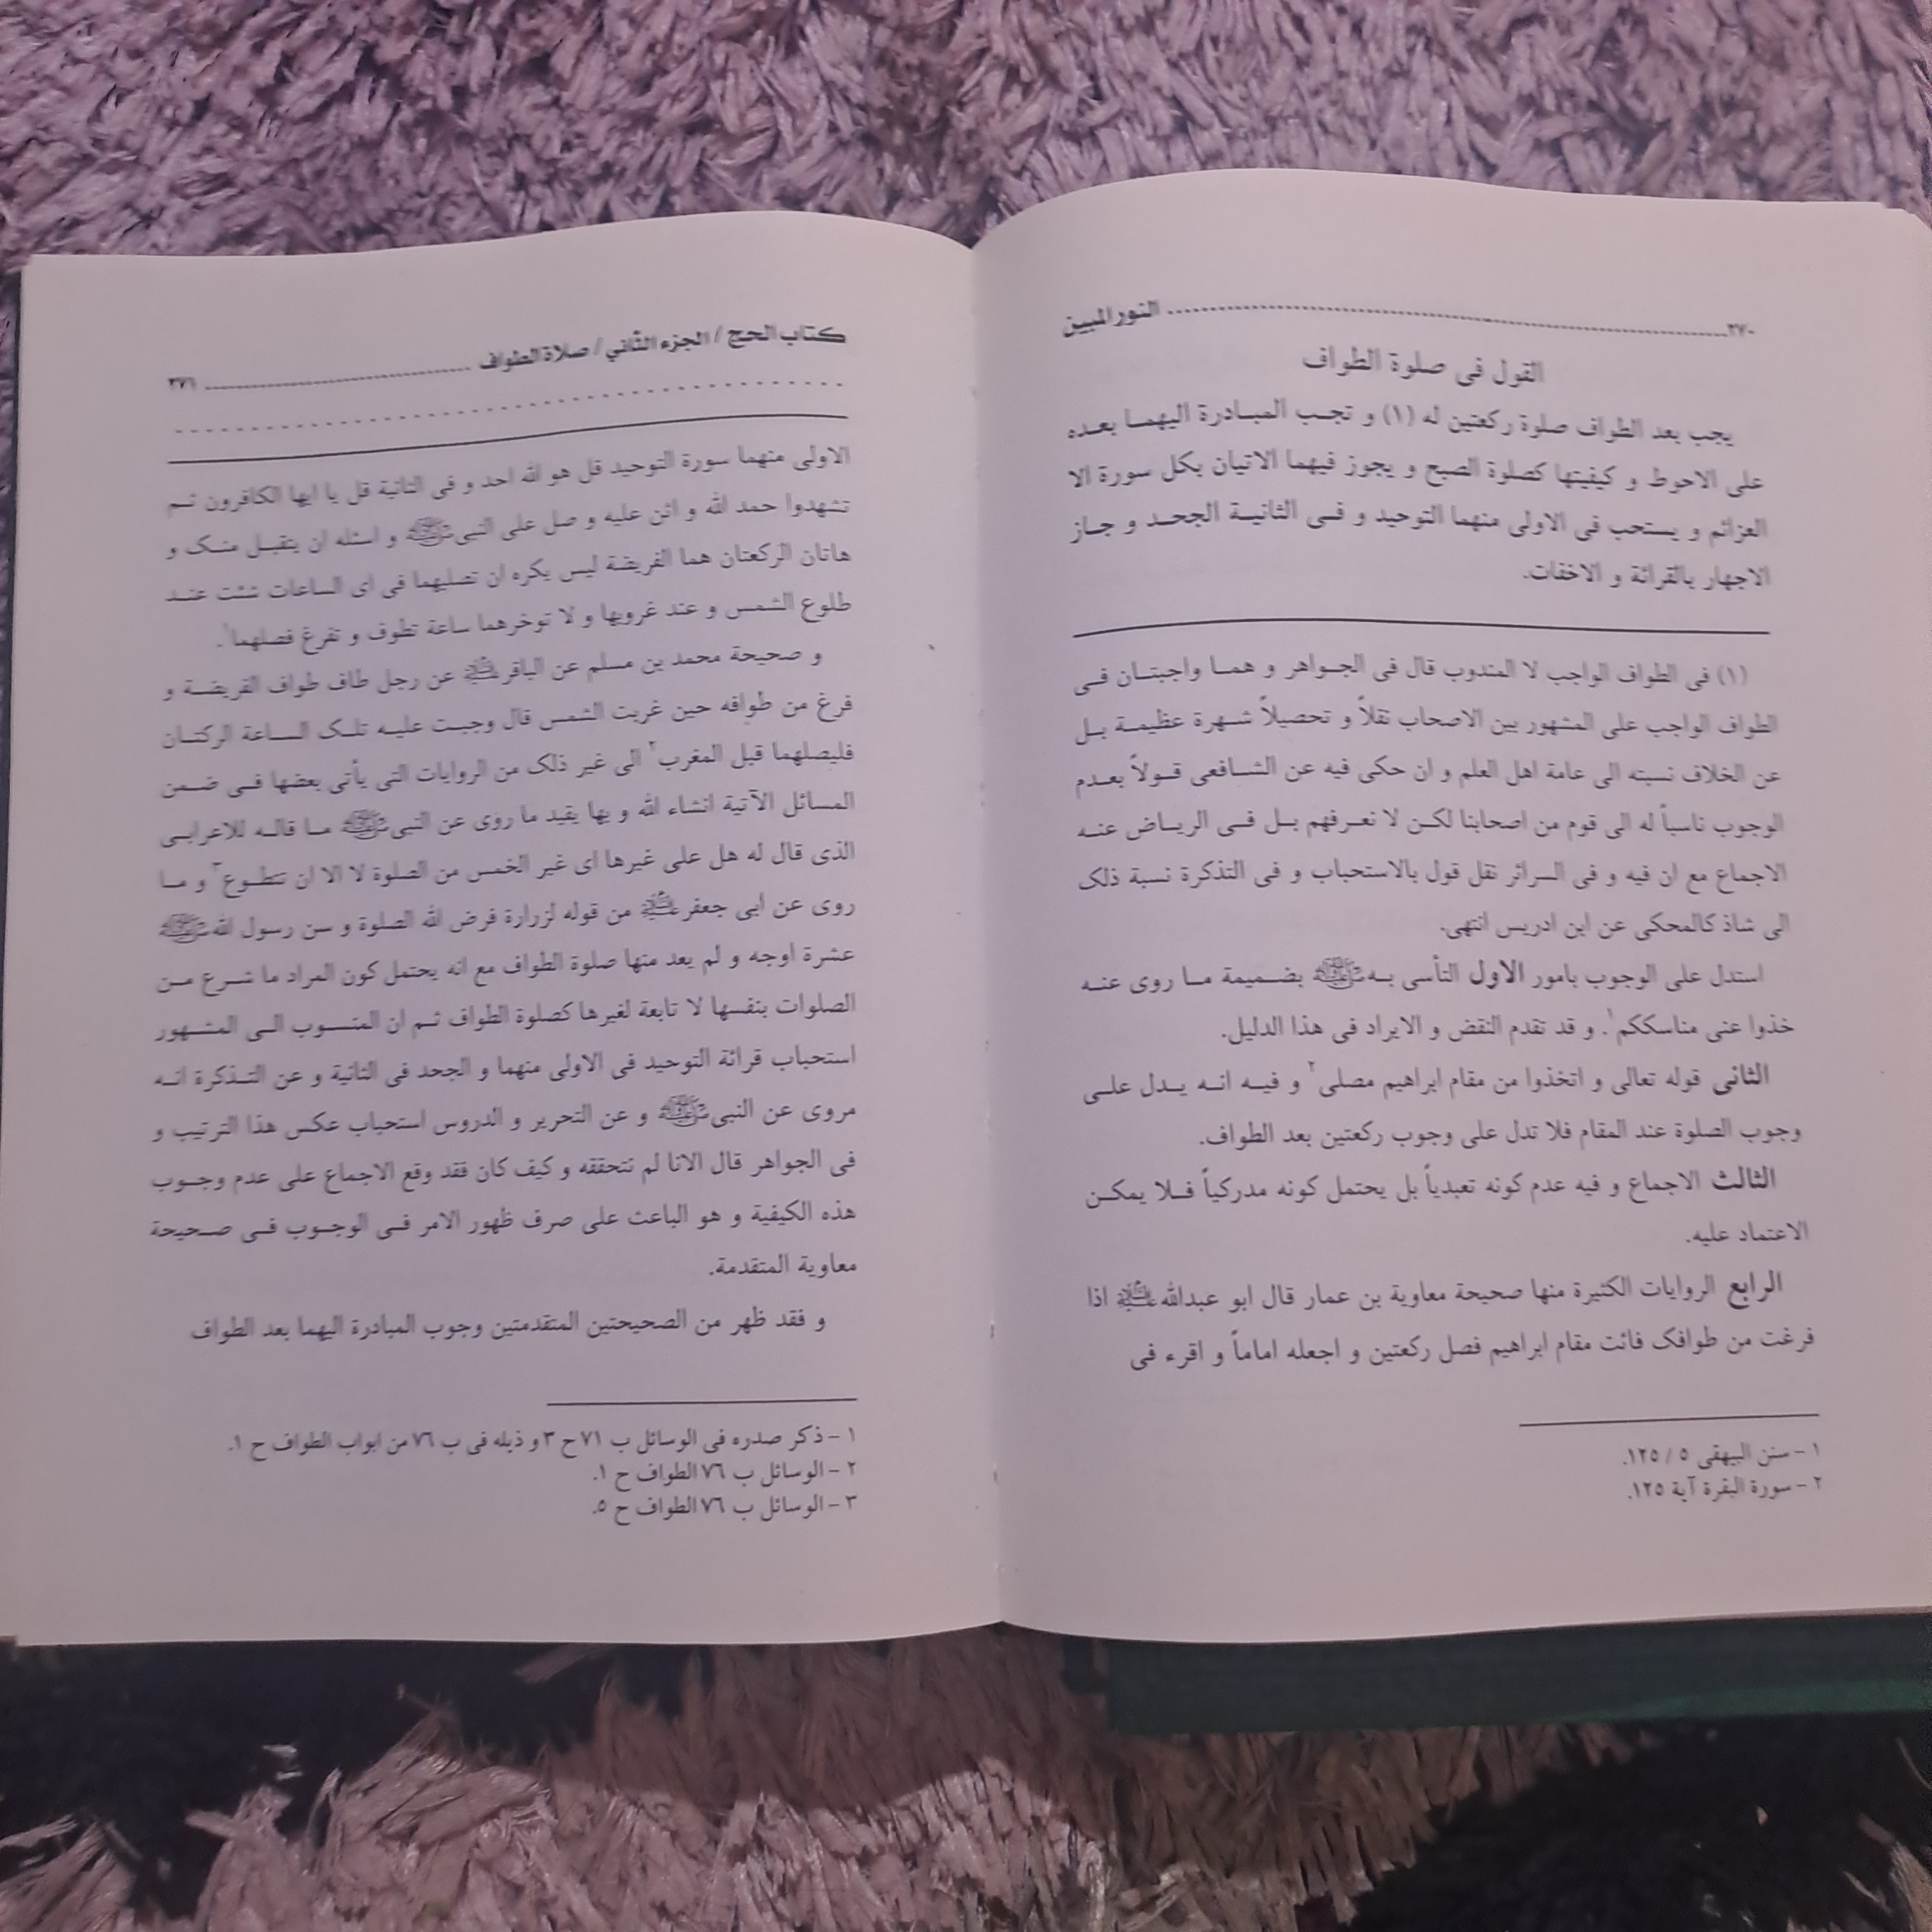 ٢٧٠ النور المبين
القول فى صلوة الطواف
يجب بعد الطواف صلوة ركعتين له (١) و تجب المبادرة اليهما بعده
على الاحوط و كيفيتها كصلوة الصبح و يجوز فيهما الاتيان بكل سورة الا
العزائم و يستحب فى الاولى منهما التوحيد و فى الثانية الجحد و جاز
الاجهار بالقرائة و الاخفات.
(١) فى الطواف الواجب لا المندوب قال فى الجواهر و هما واجبتان فى
الطواف الواجب على المشهور بين الاصحاب نقلاً و تحصيلاً شهرة عظيمة بل
عن الخلاف نسبته الى عامة اهل العلم و ان حكى فيه عن الشافعى قولاً بعدم
الوجوب ناسباً له الى قوم من اصحابنا لكن لا نعرفهم بل فى الرياض عنه
الاجماع مع ان فيه و فى السرائر نقل قول بالاستحباب و فى التذكرة نسبة ذلك
الى شاذ كالمحكى عن ابن ادريس انتهى.
استدل على الوجوب بامور الاول التأسى به ﷺ بضميمة ما روى عنه
خذوا عنى مناسككم١. و قد تقدم النقض و الايراد فى هذا الدليل.
الثانى قوله تعالى و اتخذوا من مقام ابراهيم مصلى٢ و فيه انه يدل على
وجوب الصلوة عند المقام فلا تدل على وجوب ركعتين بعد الطواف.
الثالث الاجماع و فيه عدم كونه تعبدياً بل يحتمل كونه مدركياً فلا يمكن
الاعتماد عليه.
الرابع الروايات الكثيرة منها صحيحة معاوية بن عمار قال ابو عبدالله عليه السلام اذا
فرغت من طوافك فائت مقام ابراهيم فصل ركعتين و اجعله اماماً و اقرء فى
١ - سنن البيهقى ٥ / ١٢٥.
٢ - سورة البقرة آية ١٢٥.
كتاب الحج / الجزء الثاني / صلاة الطواف ٢٧١
الاولى منهما سورة التوحيد قل هو الله احد و فى الثانية قل يا ايها الكافرون ثم
تشهدوا حمد الله و اثن عليه و صل على النبى ﷺ و اسئله ان يتقبل منك و
هاتان الركعتان هما الفريضة ليس يكره ان تصليهما فى اى الساعات شئت عند
طلوع الشمس و عند غروبها و لا توخرهما ساعة تطوف و تفرغ فصلهما١.
و صحيحة محمد بن مسلم عن الباقر عليه السلام عن رجل طاف طواف الفريضة و
فرغ من طوافه حين غربت الشمس قال وجبت عليه تلك الساعة الركتان
فليصلهما قبل المغرب٢ الى غير ذلك من الروايات التى يأتى بعضها فى ضمن
المسائل الآتية انشاء الله و بها يقيد ما روى عن النبى ﷺ ما قاله للاعرابى
الذى قال له هل على غيرها اى غير الخمس من الصلوة لا الا ان تتطوع٣ و ما
روى عن ابى جعفر عليه السلام من قوله لزرارة فرض الله الصلوة و سن رسول الله ﷺ
عشرة اوجه و لم يعد منها صلوة الطواف مع انه يحتمل كون المراد ما شرع من
الصلوات بنفسها لا تابعة لغيرها كصلوة الطواف ثم ان المنسوب الى المشهور
استحباب قرائة التوحيد فى الاولى منهما و الجحد فى الثانية و عن التذكرة انه
مروى عن النبى ﷺ و عن التحرير و الدروس استحباب عكس هذا الترتيب و
فى الجواهر قال الانا لم نتحققه و كيف كان فقد وقع الاجماع على عدم وجوب
هذه الكيفية و هو الباعث على صرف ظهور الامر فى الوجوب فى صحيحة
معاوية المتقدمة.
و فقد ظهر من الصحيحتين المتقدمتين وجوب المبادرة اليهما بعد الطواف
١ - ذكر صدره فى الوسائل ب ٧١ ح ٣ و ذيله فى ب ٧٦ من ابواب الطواف ح ١.
٢ - الوسائل ب ٧٦ الطواف ح ١.
٣ - الوسائل ب ٧٦ الطواف ح ٥.